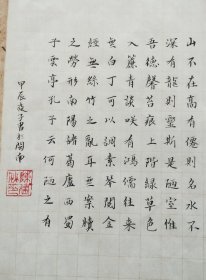 山不在高有僊則名水不
深有龍則靈斯是陋室惟
吾德馨苔痕上階綠草色
入簾青談咲有鴻儒往來
無白丁可以調素琴閱金
經無絲竹之亂耳無案牘
之勞形南陽諸葛廬西蜀
子雲亭孔子云何陋之有
甲辰子書於閩南